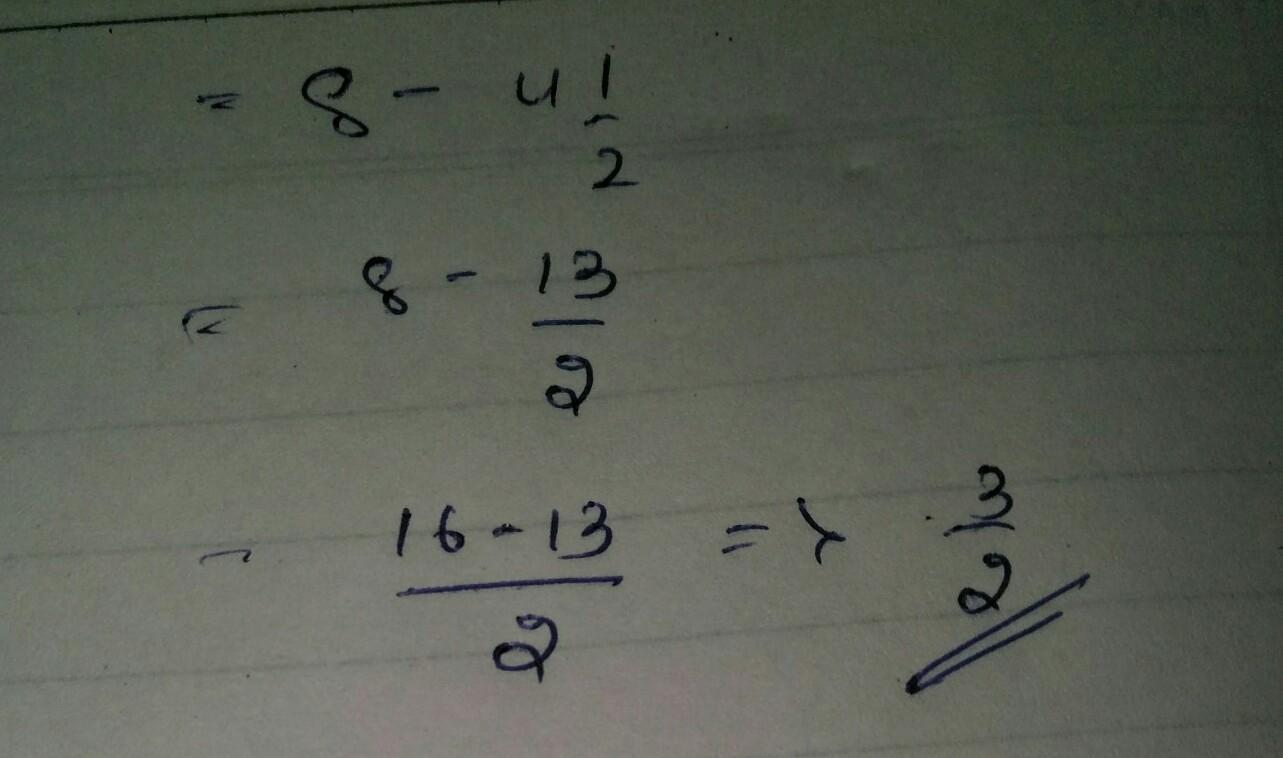 = 8 - 4 1/2
= 8 - 13/2
= 16-13/2 => 3/2